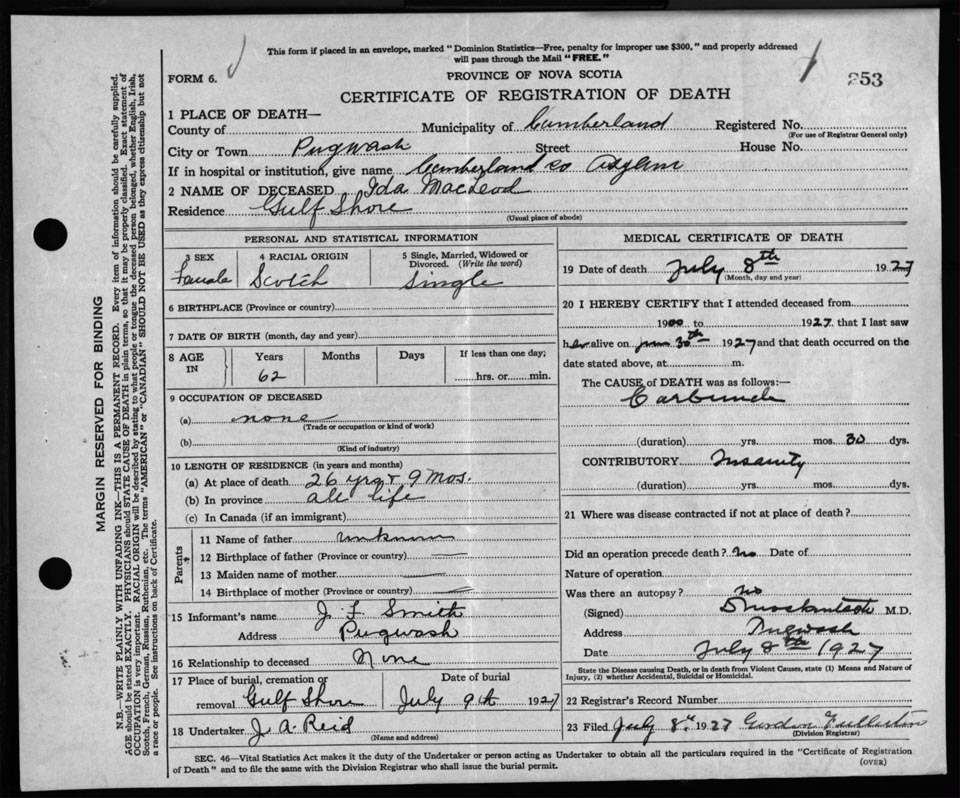 This form if placed in an envelope, marked "Dominion Statistics—Free, penalty for improper use $300," and properly addressed
will pass through the Mail "FREE."
FORM 6.
PROVINCE OF NOVA SCOTIA
253
CERTIFICATE OF REGISTRATION OF DEATH
1 PLACE OF DEATH—
County of Municipality of Cumberland Registered No.
(For use of Registrar General only)
City or Town Pugwash Street House No.
If in hospital or institution, give name Cumberland Co Asylam
2 NAME OF DECEASED Ida MacLeod
Residence Gulf Shore
(Usual place of abode)
PERSONAL AND STATISTICAL INFORMATION
3 SEX 4 RACIAL ORIGIN 5 Single, Married, Widowed or
Divorced. (Write the word)
Female Scotch Single
6 BIRTHPLACE (Province or country)
7 DATE OF BIRTH (month, day and year)
8 AGE IN Years Months Days If less than one day;
62 hrs. or min.
9 OCCUPATION OF DECEASED
(a) none
(Trade or occupation or kind of work)
(b)
(Kind of industry)
10 LENGTH OF RESIDENCE (in years and months)
(a) At place of death 26 yrs & 9 Mos.
(b) In province all life
(c) In Canada (if an immigrant)
Parents
11 Name of father unknown
12 Birthplace of father (Province or country)
13 Maiden name of mother
14 Birthplace of mother (Province or country)
15 Informant's name J. F. Smith
Address Pugwash
16 Relationship to deceased None
17 Place of burial, cremation or Date of burial
removal Gulf Shore July 9th 1927
18 Undertaker J. A. Reid
(Name and address)
MEDICAL CERTIFICATE OF DEATH
19 Date of death July 8th 1927
(Month, day and year)
20 I HEREBY CERTIFY that I attended deceased from
1900 to 1927 that I last saw
her alive on June 30th 1927 and that death occurred on the
date stated above, at m.
The CAUSE of DEATH was as follows:—
Carbuncle
(duration) yrs. mos. 30 dys.
CONTRIBUTORY Insanity
(duration) yrs. mos. dys.
21 Where was disease contracted if not at place of death?
Did an operation precede death? No Date of
Nature of operation
Was there an autopsy? No
(Signed) M.D.
Address Pugwash
Date July 8th 1927
State the Disease causing Death, or in death from Violent Causes, state (1) Means and Nature of
Injury, (2) whether Accidental, Suicidal or Homicidal.
22 Registrar's Record Number
23 Filed July 8th 1927 Gordon Fullerton
(Division Registrar)
SEC. 46—Vital Statistics Act makes it the duty of the Undertaker or person acting as Undertaker to obtain all the particulars required in the "Certificate of Registration
of Death" and to file the same with the Division Registrar who shall issue the burial permit.
(OVER)
MARGIN RESERVED FOR BINDING
N.B.—WRITE PLAINLY WITH UNFADING INK—THIS IS A PERMANENT RECORD. Every item of information should be carefully supplied.
AGE should be stated EXACTLY. PHYSICIANS should STATE CAUSE OF DEATH in plain terms, so that it may be properly classified. Exact statement of
OCCUPATION is very important. RACIAL ORIGIN will be described by stating to what people or tongue the deceased person belonged, whether English, Irish,
Scotch, French, German, Russian, Ruthenian, etc. The terms "AMERICAN" or "CANADIAN" SHOULD NOT BE USED as they express citizenship but not
a race or people. See instructions on back of Certificate.